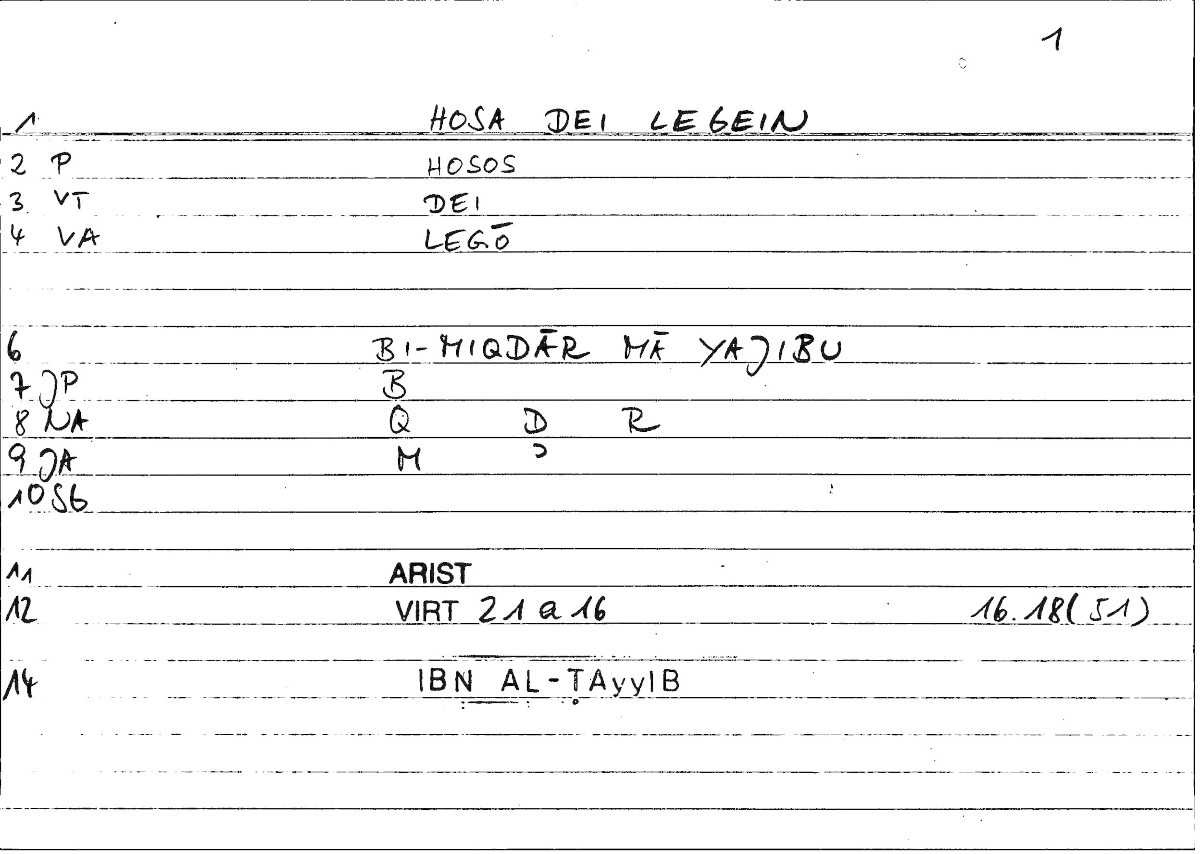 1
1 HOSA DEI LEGEIN
2 P HOSOS
3 VT DEI
4 VA LEGŌ
6 BI-MIQDĀR MĀ YAJIBU
7 JP B
8 NA Q D R
9 JA M ɔ
10 SG
11 ARIST
12 VIRT 21 a 16 16.18(51)
14 IBN AL-ṬAyyIB